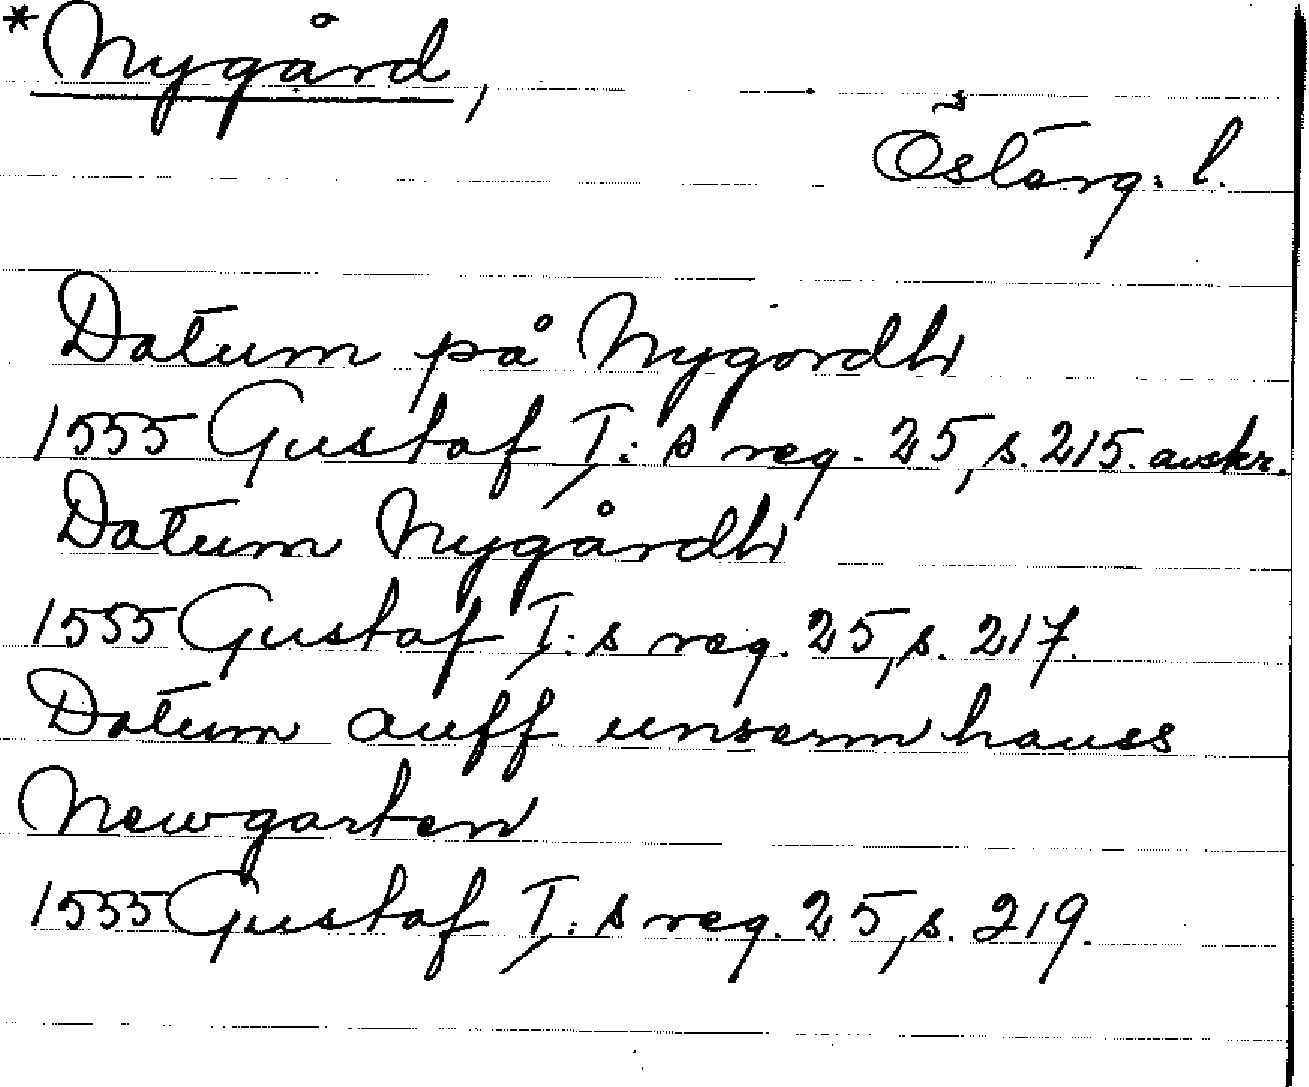 *Nygård,
Österg. l.
Datum på Nygordh
1555 Gustaf I:s reg. 25, s. 215. avskr.
Datum Nygårdh
1555 Gustaf I:s reg. 25, s. 217.
Datum auff unserm hauss
Newgarten
1555 Gustaf I:s reg. 25, s. 219.